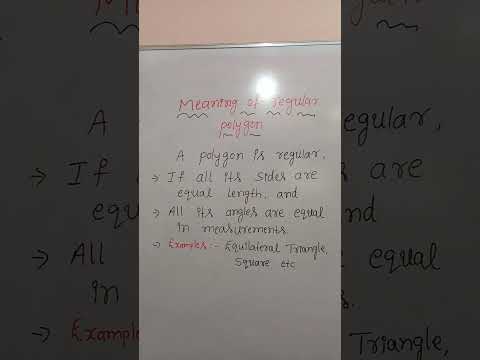 Meaning of regular
polygon
A polygon is regular,
→ If all its sides are
equal length, and
→ All its angles are equal
in measurements.
→ Examples :- Equilateral Triangle,
Square etc